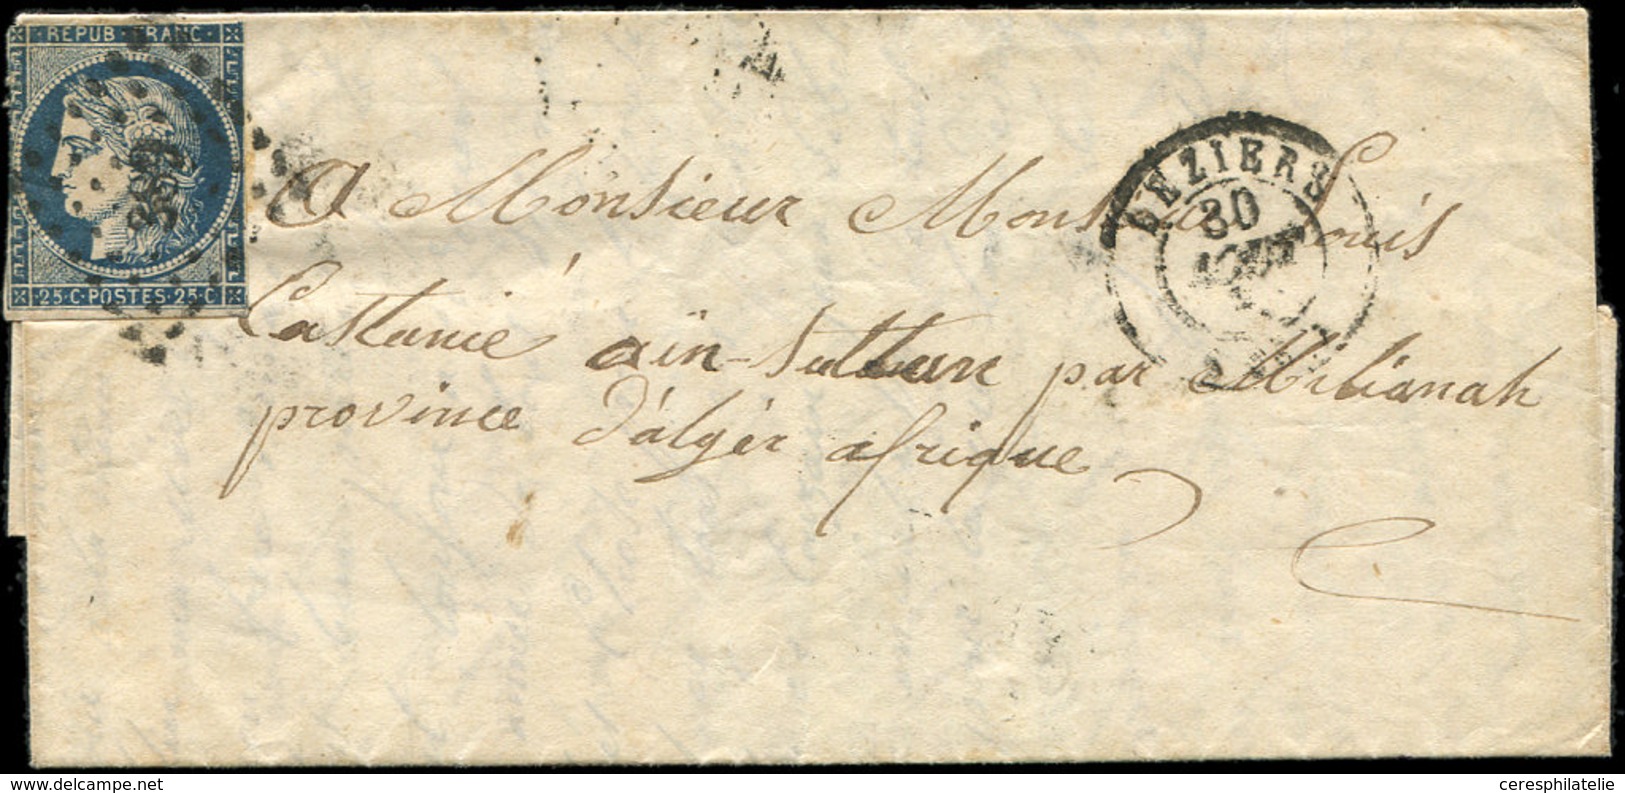 REPUB · FRANC ·
25·C·POSTES·25·C
BEZIERS
30
AOUT
A Monsieur Monsieur Louis
Castanié ain-Sultan par Milianah
province d'alger afrique
www.delcampe.net
ceresphilatelie